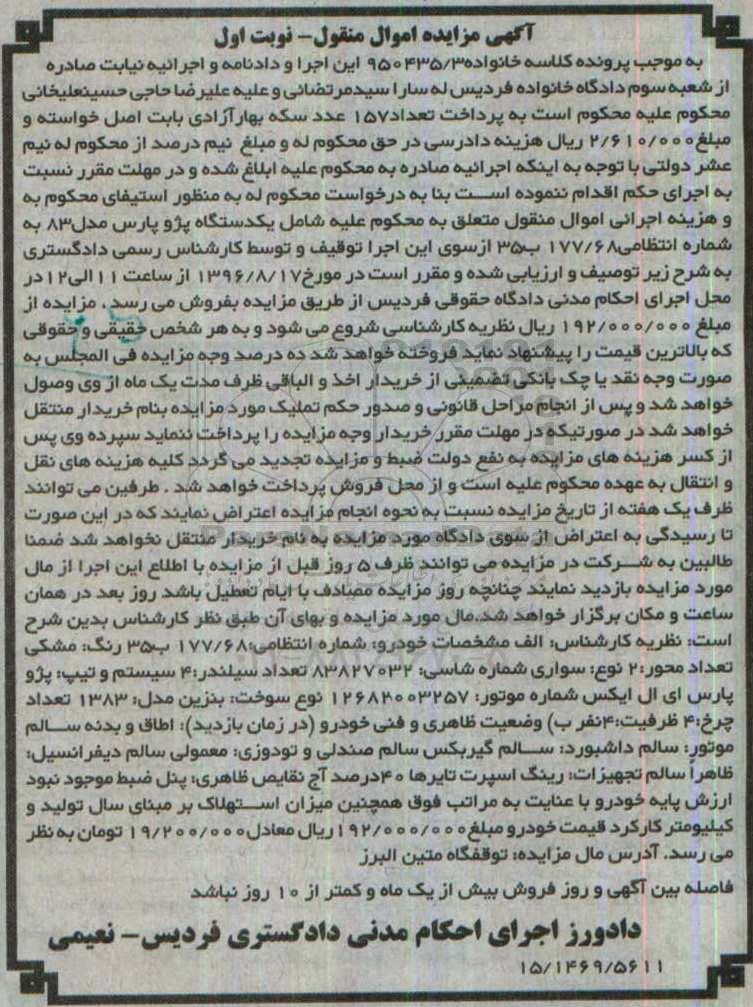 آگهی مزایده اموال منقول- نوبت اول
به موجب پرونده کلاسه خانواده۹۵۰۴۳۵/۳ این اجرا و دادنامه و اجرائیه نیابت صادره
از شعبه سوم دادگاه خانواده فردیس له سارا سیدمرتضائی و علیه علیرضا حاجی حسینعلیخانی
محکوم علیه محکوم است به پرداخت تعداد۱۵۷ عدد سکه بهارآزادی بابت اصل خواسته و
مبلغ۲/۶۱۰/۰۰۰ ریال هزینه دادرسی در حق محکوم له و مبلغ نیم درصد از محکوم له نیم
عشر دولتی با توجه به اینکه اجرائیه صادره به محکوم علیه ابلاغ شده و در مهلت مقرر نسبت
به اجرای حکم اقدام ننموده است بنا به درخواست محکوم له به منظور استیفای محکوم به
و هزینه اجرائی اموال منقول متعلق به محکوم علیه شامل یکدستگاه پژو پارس مدل۸۳ به
شماره انتظامی۱۷۷/۶۸ ب۳۵ ازسوی این اجرا توقیف و توسط کارشناس رسمی دادگستری
به شرح زیر توصیف و ارزیابی شده و مقرر است در مورخ۱۳۹۶/۸/۱۷ از ساعت ۱۱الی۱۲در
محل اجرای احکام مدنی دادگاه حقوقی فردیس از طریق مزایده بفروش می رسد، مزایده از
مبلغ ۱۹۲/۰۰۰/۰۰۰ ریال نظریه کارشناسی شروع می شود و به هر شخص حقیقی و حقوقی
که بالاترین قیمت را پیشنهاد نماید فروخته خواهد شد ده درصد وجه مزایده فی المجلس به
صورت وجه نقد یا چک بانکی تضمینی از خریدار اخذ و الباقی ظرف مدت یک ماه از وی وصول
خواهد شد و پس از انجام مراحل قانونی و صدور حکم تملیک مورد مزایده بنام خریدار منتقل
خواهد شد در صورتیکه در مهلت مقرر خریدار وجه مزایده را پرداخت ننماید سپرده وی پس
از کسر هزینه های مزایده به نفع دولت ضبط و مزایده تجدید می گردد کلیه هزینه های نقل
و انتقال به عهده محکوم علیه است و از محل فروش پرداخت خواهد شد . طرفین می توانند
ظرف یک هفته از تاریخ مزایده نسبت به نحوه انجام مزایده اعتراض نمایند که در این صورت
تا رسیدگی به اعتراض از سوی دادگاه مورد مزایده به نام خریدار منتقل نخواهد شد ضمنا
طالبین به شرکت در مزایده می توانند ظرف ۵ روز قبل از مزایده با اطلاع این اجرا از مال
مورد مزایده بازدید نمایند چنانچه روز مزایده مصادف با ایام تعطیل باشد روز بعد در همان
ساعت و مکان برگزار خواهد شد.مال مورد مزایده و بهای آن طبق نظر کارشناس بدین شرح
است: نظریه کارشناس: الف مشخصات خودرو: شماره انتظامی:۱۷۷/۶۸ ب۳۵ رنگ: مشکی
تعداد محور:۲ نوع: سواری شماره شاسی: ۸۳۸۲۷۰۳۲ تعداد سیلندر:۴ سیستم و تیپ: پژو
پارس ای ال ایکس شماره موتور: ۱۲۶۸۳۰۰۳۲۵۷ نوع سوخت: بنزین مدل: ۱۳۸۳ تعداد
چرخ:۴ ظرفیت:۴نفر ب) وضعیت ظاهری و فنی خودرو (در زمان بازدید): اطاق و بدنه سالم
موتور: سالم داشبورد: سالم گیربکس سالم صندلی و تودوزی: معمولی سالم دیفرانسیل:
ظاهراً سالم تجهیزات: رینگ اسپرت تایرها ۴۰درصد آج نقایص ظاهری: پنل ضبط موجود نبود
ارزش پایه خودرو با عنایت به مراتب فوق همچنین میزان استهلاک بر مبنای سال تولید و
کیلیومتر کارکرد قیمت خودرو مبلغ۱۹۲/۰۰۰/۰۰۰ریال معادل۱۹/۲۰۰/۰۰۰ تومان به نظر
می رسد. آدرس مال مزایده: توقفگاه متین البرز
فاصله بین آگهی و روز فروش بیش از یک ماه و کمتر از ۱۰ روز نباشد
دادورز اجرای احکام مدنی دادگستری فردیس- نعیمی
۱۵/۱۴۶۹/۵۶۱۱